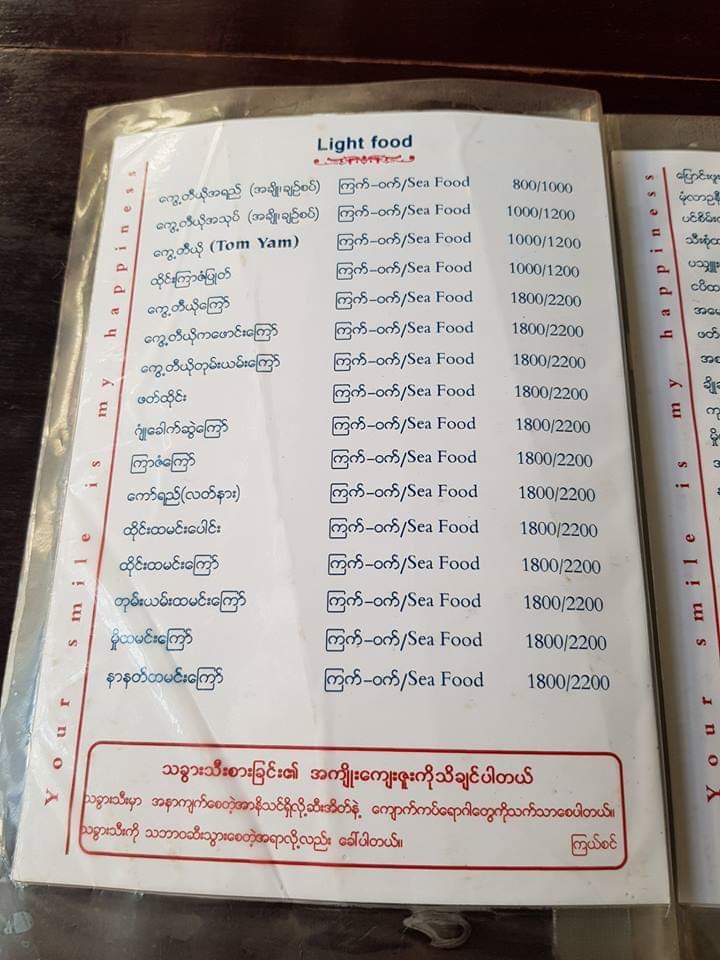 Light food
ကွေ့တီယိုအရည် (အချို၊ချဉ်စပ်) ကြက်-ဝက်/Sea Food 800/1000
ကွေ့တီယိုအသုပ် (အချို၊ချဉ်စပ်) ကြက်-ဝက်/Sea Food 1000/1200
ကွေ့တီယို (Tom Yam) ကြက်-ဝက်/Sea Food 1000/1200
ထိုင်းကြာဇံပြုတ် ကြက်-ဝက်/Sea Food 1000/1200
ကွေ့တီယိုကြော် ကြက်-ဝက်/Sea Food 1800/2200
ကွေ့တီယိုကဖောင်းကြော် ကြက်-ဝက်/Sea Food 1800/2200
ကွေ့တီယိုတုမ်းယမ်းကြော် ကြက်-ဝက်/Sea Food 1800/2200
ဖတ်ထိုင်း ကြက်-ဝက်/Sea Food 1800/2200
ဂျုံခေါက်ဆွဲကြော် ကြက်-ဝက်/Sea Food 1800/2200
ကြာဇံကြော် ကြက်-ဝက်/Sea Food 1800/2200
ကော်ရည်(လတ်နား) ကြက်-ဝက်/Sea Food 1800/2200
ထိုင်းထမင်းပေါင်း ကြက်-ဝက်/Sea Food 1800/2200
ထိုင်းထမင်းကြော် ကြက်-ဝက်/Sea Food 1800/2200
တုမ်းယမ်းထမင်းကြော် ကြက်-ဝက်/Sea Food 1800/2200
မှိုထမင်းကြော် ကြက်-ဝက်/Sea Food 1800/2200
နာနတ်ထမင်းကြော် ကြက်-ဝက်/Sea Food 1800/2200
သခွားသီးစားခြင်း၏ အကျိုးကျေးဇူးကိုသိချင်ပါတယ်
သခွားသီးမှာ အနာကျက်စေတဲ့အာနိသင်ရှိလို့ဆီးအိတ်နဲ့ ကျောက်ကပ်ရောဂါတွေကိုသက်သာစေပါတယ်။
သခွားသီးကို သဘာဝဆီးသွားစေတဲ့အရာလို့လည်း ခေါ်ပါတယ်။ ကြယ်စင်
Your smile is my happiness
smile is my happiness